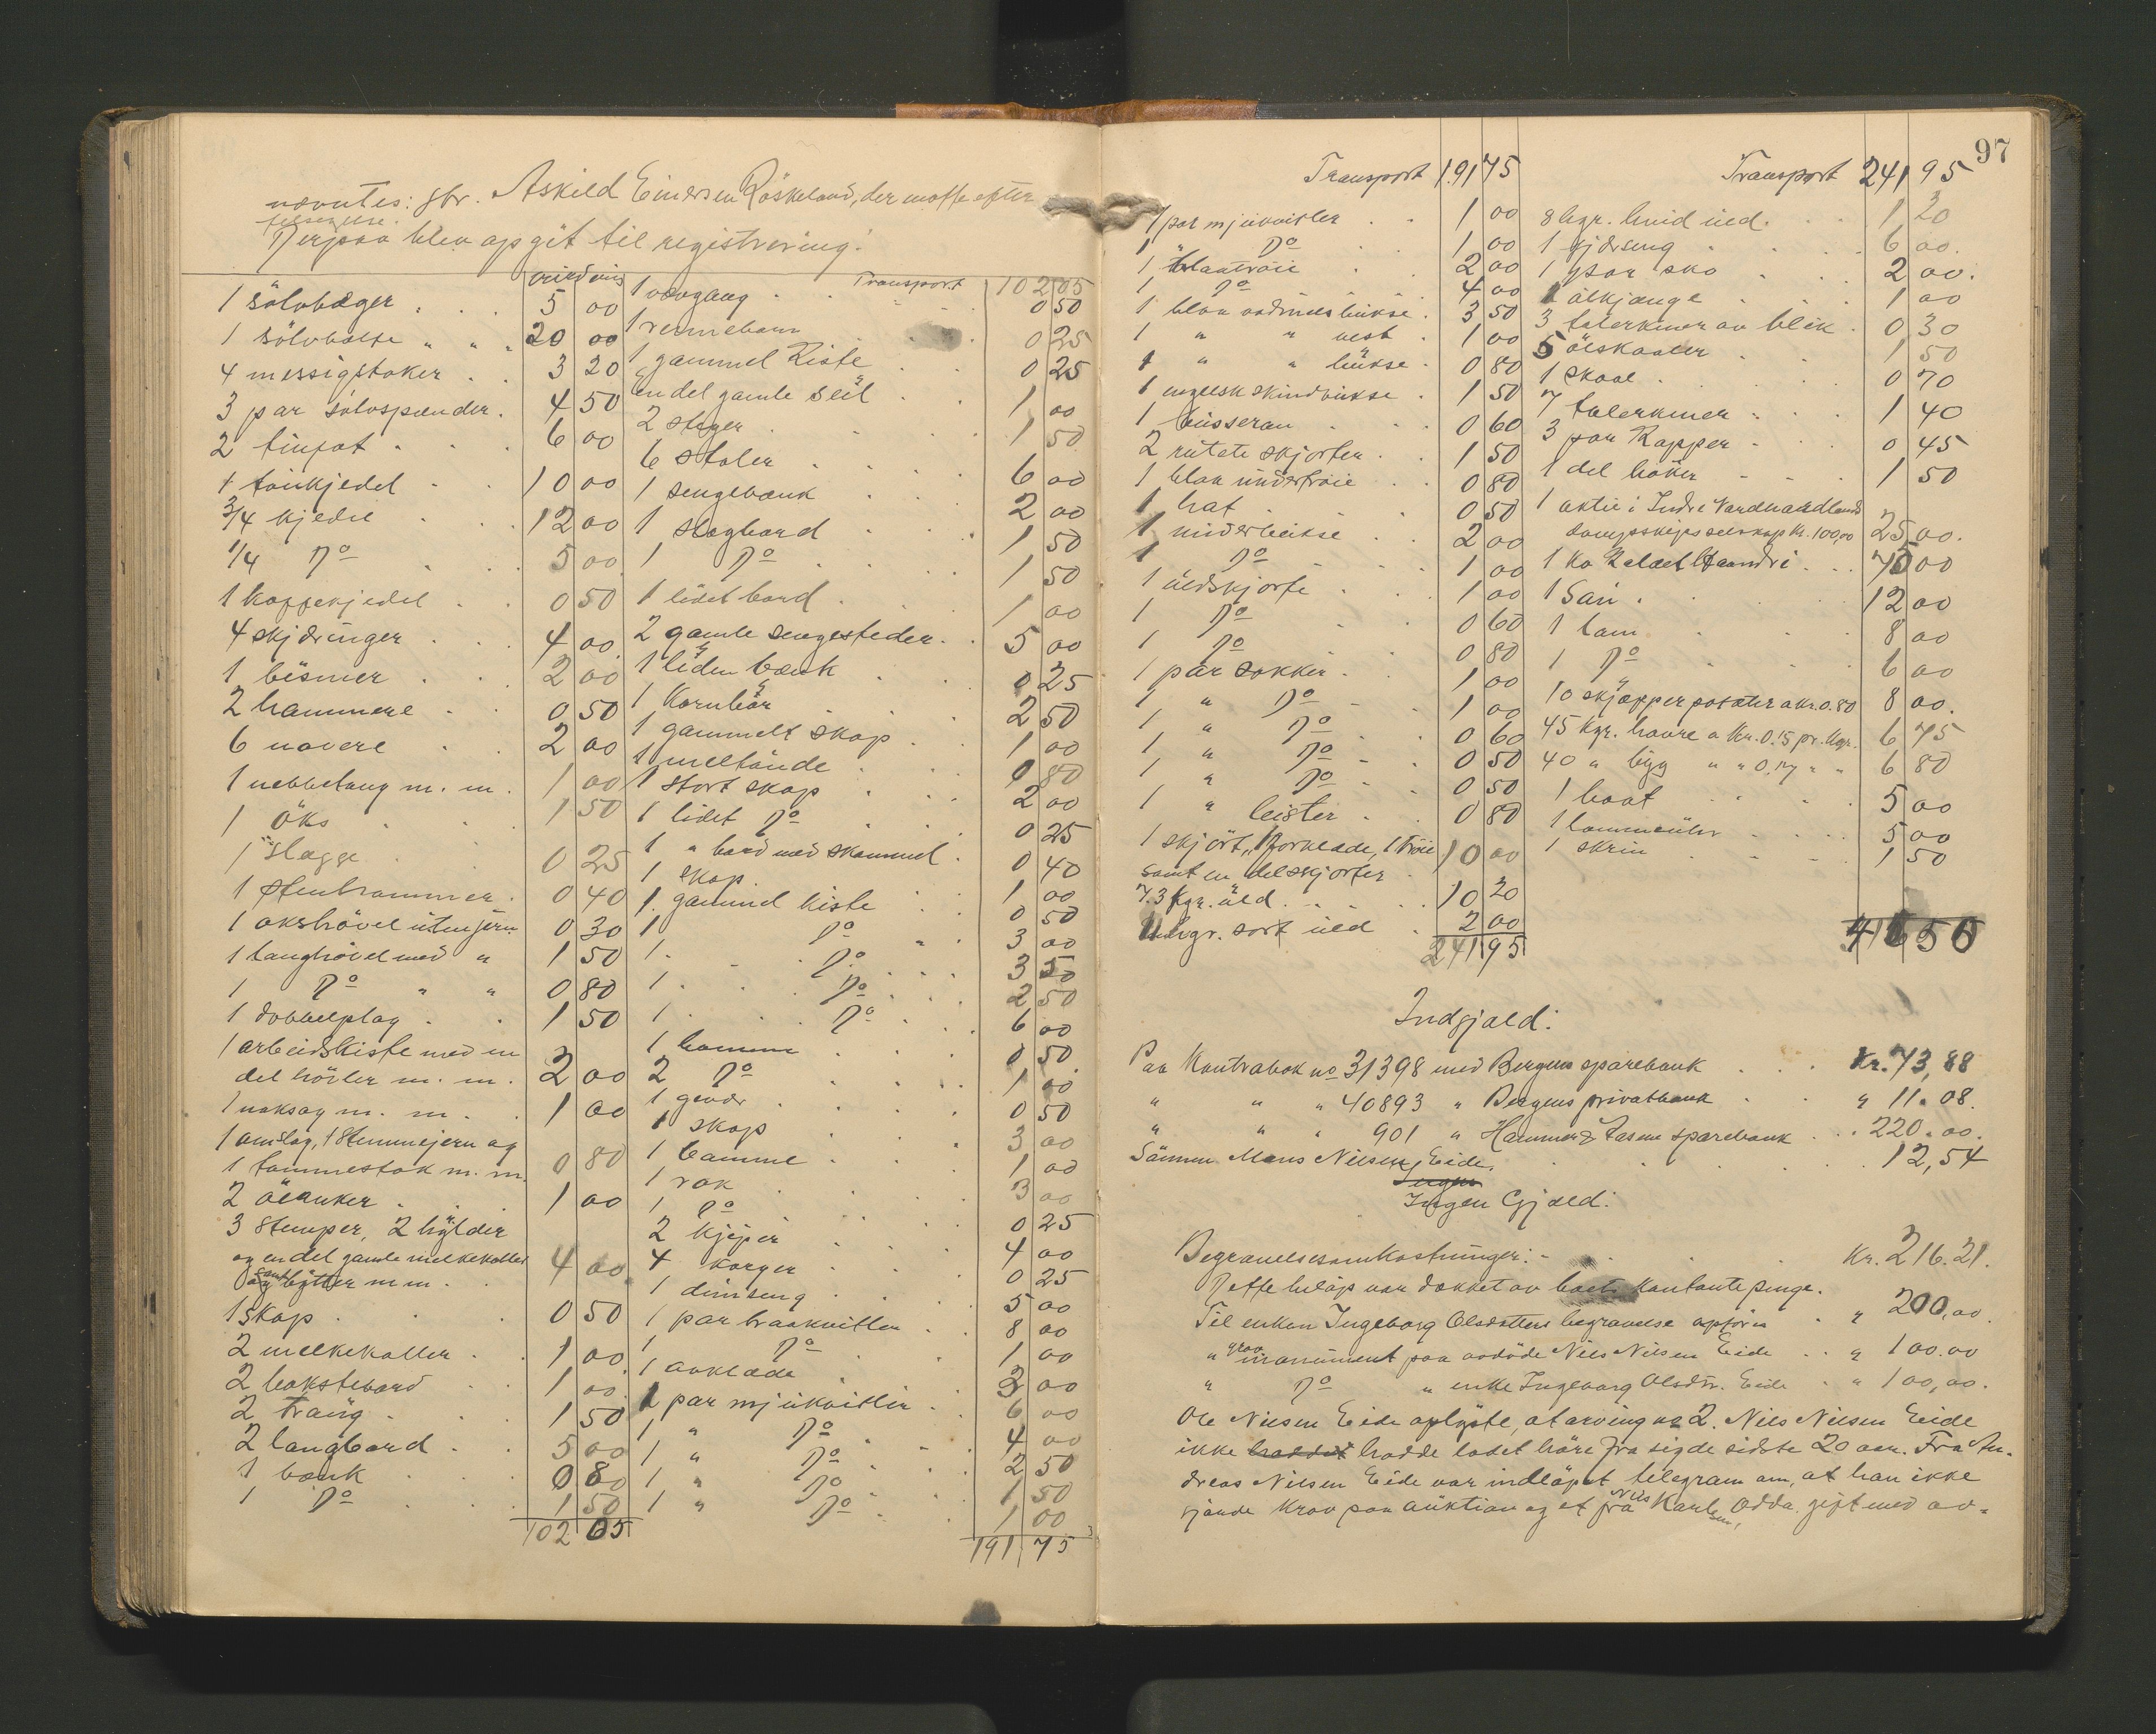 nævntes: gbr. Askild Einersen Röskeland, der motte efter
tilsigelse.
Derpaa blev opgit til registrering:
1 sölvbæger . . . 5 00
1 sölvbolle " " " 20 00
4 messigstaker . . 3 20
3 par sölvspænder . 4 50
2 tinfat . . . 6 00
1 töinkjedel . . 10 00
3/4 kjedel . . 12 00
1/4 Do . . 5 00
1 kaffekjedel . . 0 50
4 skjæringer . . 4 00
1 bismer . . . 2 00
2 hammere . . 0 50
6 navere . . 2 00
1 nebbetang m. m. 1 00
1 öks . . . 1 50
1 slægge . . . 0 25
1 stenhammer . 0 40
1 okshövel uten jern 0 30
1 langhövel med " 1 50
1 Do " " 0 80
1 dobbelplog . . 1 50
1 arbeidskiste med en
del hövler m. m. 2 00
1 naksag m. m. . 1 00
1 omslag, 1 stemmejern og
1 tommestok m. m. 0 80
2 ölanker . . . 1 00
3 stamper, 2 bytter
og en del gamle melkekoller
samt bytter m m . 4 00
1 skap . . . 0 50
2 melkekoller . . 1 00
2 bakstebord . . 1 00
2 traug . . . 1 50
2 langbord . . 5 00
1 bænk . . . 0 80
1 Do . . . 1 50
102 05
Transport 102 05
1 vævgang . . . 0 50
1 rennebom . . 0 25
1 gammel Kiste . . 0 25
En del gamle seil . . 1 00
2 steger . . . 1 50
6 stoler . . . 6 00
1 sengebænk . . . 2 00
1 slagbord . . . 1 50
1 Do . . . 1 50
1 lidet bord . . . 1 00
2 gamle sengesteder . . 5 00
1 liden bænk . . 0 25
1 Kornbör . . . 2 50
1 gammelt skap . . 1 00
1 meltönde . . . 0 80
1 stort skap . . . 2 00
1 lidet Do . . . 0 25
1 " bord med skammel . 0 40
1 skap . . . 1 00
1 gammel kiste . . 0 50
1 Do . . 3 00
1 . . Do . . . 3 50
1 . . Do . . . 2 50
1 . . Do . . . 6 00
1 lomme . . . 0 50
2 Do . . . 1 00
1 gevær . . . 0 50
1 skap . . . 3 00
1 tomme . . . 1 00
1 rok . . . 3 00
1 Do . . . 0 25
2 kjiper . . . 4 00
4 korger . . . 0 25
1 dunseng . . . 5 00
1 par braakvitler . . 8 00
1 Do . . . 1 00
1 aaklæde . . . 3 00
1 par mjukvitler . . 6 00
1 " Do . . 4 00
1 " Do . . 2 50
1 " Do . . 1 50
1 " Do . . 1 00
191 75
97
Transport 191 75
1 par mjukvitler . . 1 00
1 Do . . 1 00
1 blaatröie . . 2 00
1 Do . . 4 00
1 blaa vadmelsbukse . 3 50
1 " " vest . 1 00
1 " " bukse . 0 80
1 engelsk skindbukse . 1 50
1 busseron . . . 0 60
2 rutete skjorter . . 1 50
1 blaa undertröie . . 0 80
1 hat . . . 0 50
1 underbukse . . 2 00
1 Do . . 1 00
1 uldskjorte . . 1 00
1 Do . . 0 60
1 Do . . 0 80
1 par sokker . . 1 00
1 " Do . . 1 00
1 " Do . . 0 60
1 " Do . . 0 50
1 " Do . . 0 50
1 " leister . . 0 80
1 skjört, 1 forklæde, 1 tröie 10 00
samt en del skjorter .
7.3 kgr. uld . . . 10 20
1 kgr. sort uld . 2 00
241 95
Transport 241 95
8 hgr. hvid uld . . . 1 20
1 fjærseng . . . 6 00.
1 par sko . . . 2 00.
1 ölkjænge . . . 1 00
3 talerkener av blik . 0 30
5 ölskaaler . . 1 50
1 skaal . . . 0 70
7 talerkener . . . 1 40
3 par Kopper . . . 0 45
1 del böker . . . 1 50
1 aktie i Indre Nordhordlands
dampskipsselskap Kr. 100,00 25 00.
1 ko kaldet Haandri . . . 75 00
1 Sau . . . 12 00
1 lam . . . 8 00
1 Do . . . 6 00
10 skjæpper poteter a kr. 0.80 8 00.
45 kgr. havre a kr. 0.15 pr. kgr. 6 75
40 " byg " " 0,17 " " 6 80
1 baat . . . 5 00
1 lommeuhr . . . 5 00
1 skrin . . . 1 50
416 50
Indgjæld:
Paa Kontrabok no 31398 med Bergens sparebank . . . Kr. 73,88
" " " 40893 " Bergens privatbank . . " 11.08.
" " " 901 " Hammer & Aasene sparebank . . . 220.00.
Sönnen Mons Nilsen Eide. . . . 12,54
Ingen
Ingen Gjæld:
Begravelsesomkostninger: - . . . Kr. 216.21.
Dette belöp var dækket av boets kontante penge.
Til enken Ingeborg Olsdatters begravelse opföres . " 200,00.
" grav monument paa avdöde Nils Nilsen Eide . . " 100.00
" Do " enke Ingeborg Olsdtr. Eide . " 100,00.
Ole Nilsen Eide oplyste, at arving no 2. Nils Nilsen Eide
ikke haddet hadde ladet höre fra sig de sidste 20 aar. Fra An-
dreas Nilsen Eide var indlöpet telegram om, at han ikke
gjorde krav paa auktion og et fra Nils Karlsen, Odda, gift med av-